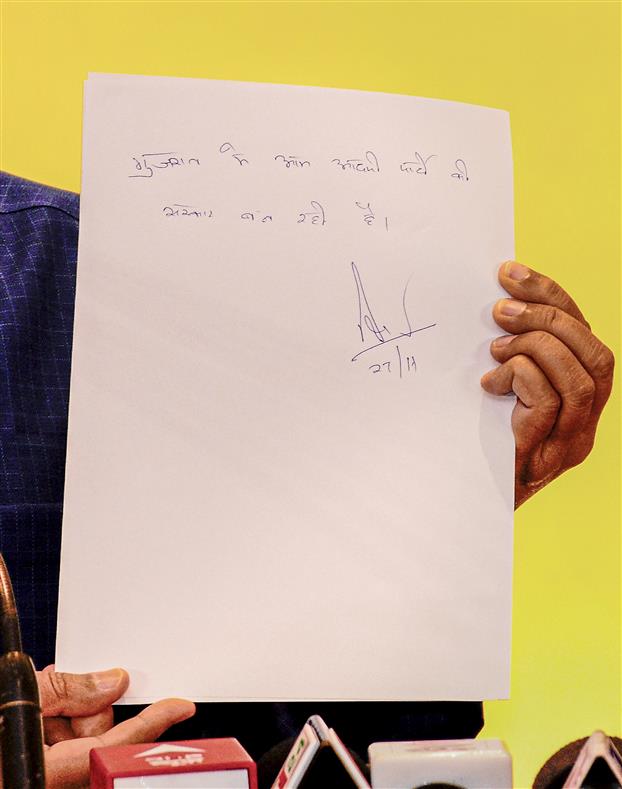 गुजरात में आम आदमी पार्टी की
सरकार बन रही है।
27/11